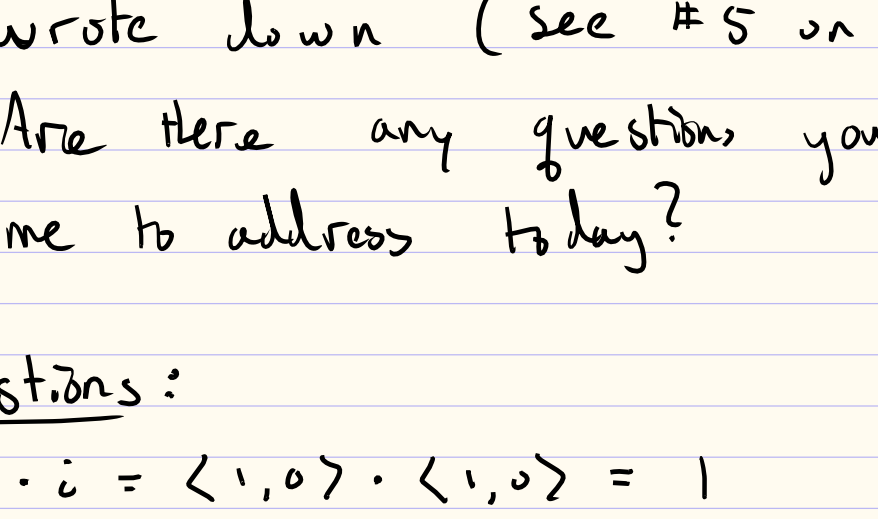 wrote down (see #5 on
Are there any questions you
me to address today?
stions:
· i = <1,0> · <1,0> = 1